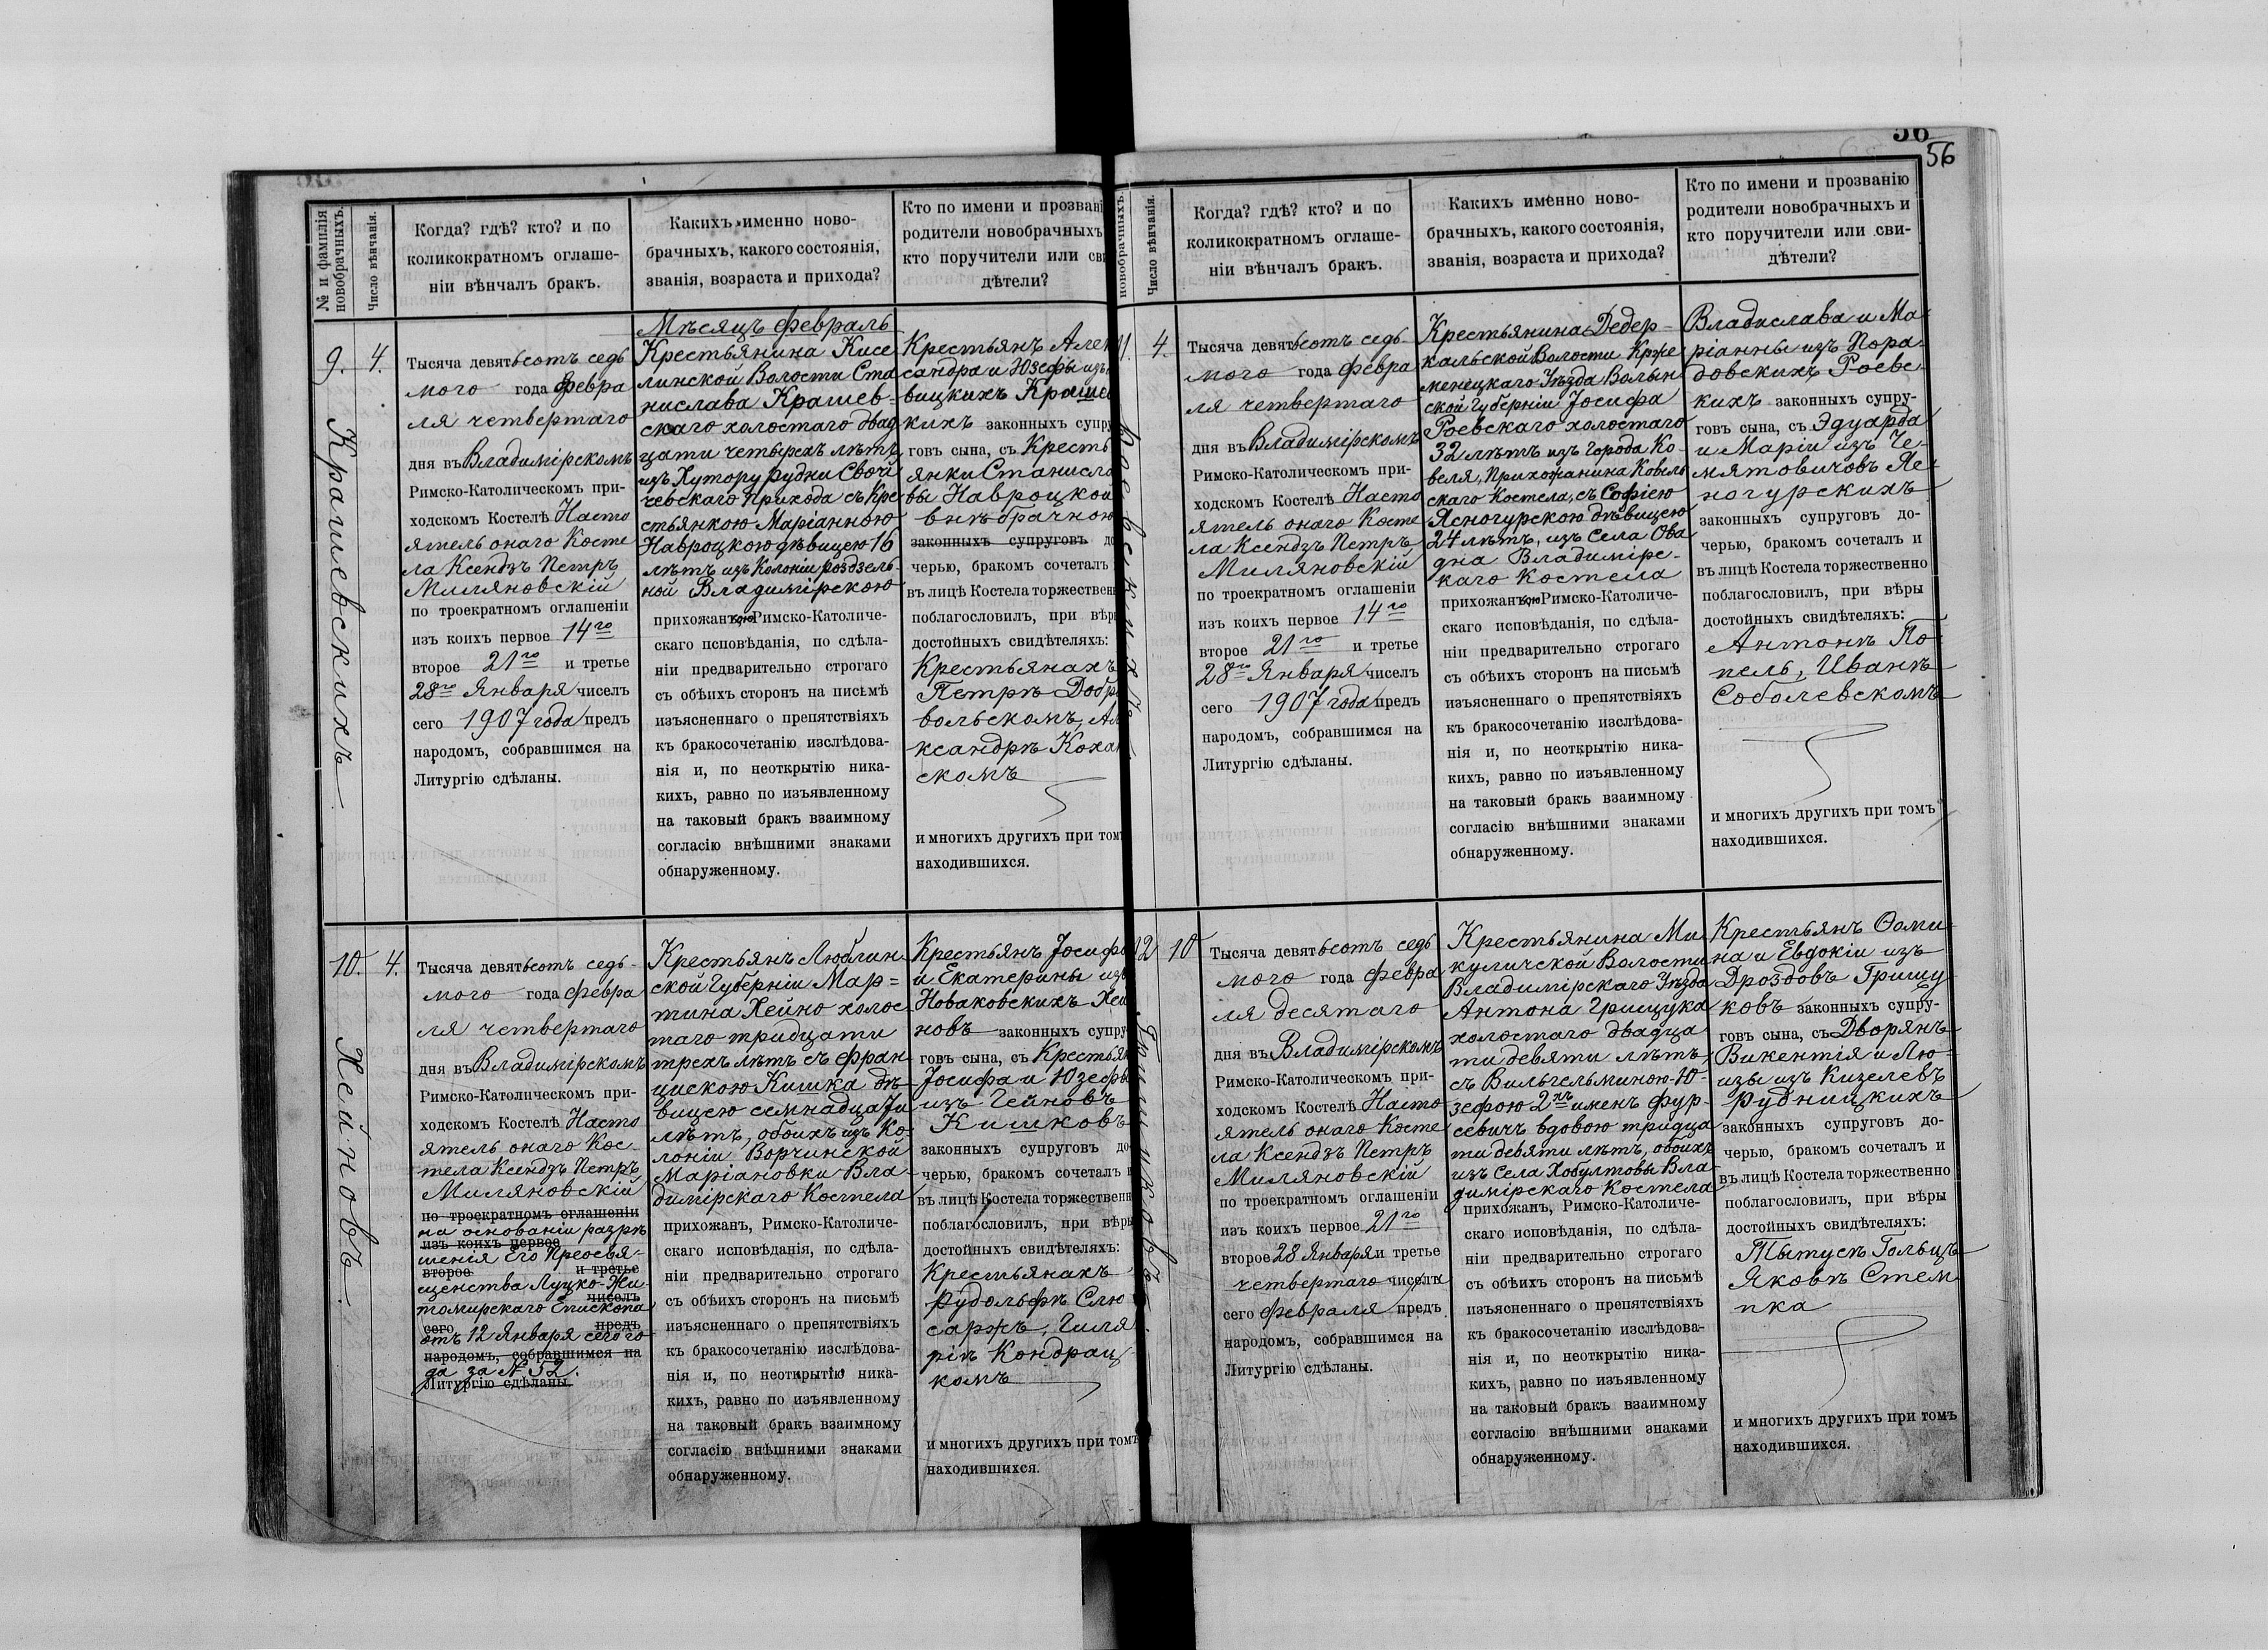 56
56
№ и фамилія
новобрачныхъ.
Число вѣнчанія.
Когда? гдѣ? кто? и по
коликократномъ оглаше-
ніи вѣнчалъ бракъ.
Какихъ именно ново-
брачныхъ, какого состоянія,
званія, возраста и прихода?
Кто по имени и прозвані
родители новобрачныхъ
кто поручители или сви
дѣтели?
9.
Крашевскихъ
4.
Тысяча девятьсотъ седь
мого года февра
ля четвертаго
дня въ Владимірскомъ
Римско-Католическомъ при-
ходскомъ Костелѣ Насто
ятель онаго Косте
ла Ксендзъ Петръ
Миляновскій
по троекратномъ оглашеніи
изъ коихъ первое 14го
второе 21го и третье
28го Января чиселъ
сего 1907 года предъ
народомъ, собравшимся на
Литургію сдѣланы.
Мѣсяцъ февраль
Крестьянина Кисе
линской Волости Ста
нислава Крашев-
скаго холостаго двад
цати четырехъ лѣтъ
изъ Хутору Рудни Свой
чевскаго прихода съ Кре
стьянкою Маріанною
Навроцкою дѣвицею 16
лѣтъ изъ Колоніи Роздзель-
ной Владимірскою
прихожанкою Римско-Католиче-
скаго исповѣданія, по сдѣла-
ніи предварительно строгаго
съ обѣихъ сторонъ на письмѣ
изъясненнаго о препятствіяхъ
къ бракосочетанію изслѣдова-
нія и, по неоткрытію ника-
кихъ, равно по изъявленному
на таковый бракъ взаимному
согласію внѣшними знаками
обнаруженному.
Крестьянъ Алек
сандра и Юзефы изъ
вицкихъ Крашев
кихъ законныхъ супру
говъ сына, съ Кресть
янки Станисла
вы Навроцкой
внѣбрачною
законныхъ супруговъ до
черью, бракомъ сочеталъ
въ лицѣ Костела торжествен
поблагословилъ, при вѣр
достойныхъ свидѣтеляхъ:
Крестьянахъ
Петрѣ Добр
вольскомъ, Ал
ксандрѣ Кохан
скомъ
и многихъ другихъ при томъ
находившихся.
10.
Хейновъ
4.
Тысяча девятьсотъ седь-
мого года февра
ля четвертаго
дня въ Владимірскомъ
Римско-Католическомъ при-
ходскомъ Костелѣ Насто
ятель онаго Кос-
тела Ксендзъ Петръ
Миляновскій
по троекратномъ оглашеніи
на основаніи разрѣ
изъ коихъ первое
шенія Его Преосвя-
второе и третье
щенства Луцко-Жи-
чиселъ
томирскаго Епископа
сего предъ
отъ 12 Января сего го
народомъ, собравшимся на
да за № 52.
Литургію сдѣланы.
Крестьянъ Люблин-
ской Губерніи Мар=
тина Хейно холос
таго тридцати
трехъ лѣтъ съ Фран
цискою Кишка дѣ
вицею семнадцати
лѣтъ, обоихъ изъ Ко
лоніи Ворчинской
Маріановки Вла
димірскаго Костела
прихожанъ, Римско-Католиче-
скаго исповѣданія, по сдѣла-
ніи предварительно строгаго
съ обѣихъ сторонъ на письмѣ
изъясненнаго о препятствіяхъ
къ бракосочетанію изслѣдова-
нія и, по неоткрытію ника-
кихъ, равно по изъявленному
на таковый бракъ взаимному
согласію внѣшними знаками
обнаруженному.
Крестьянъ Іосифа
и Екатерины изъ
Новаковскихъ Хей
новъ законныхъ супру
говъ сына, съ Крестьян
Іосифа и Юзефы
изъ Гейновъ
Кишковъ
законныхъ супруговъ до-
черью, бракомъ сочеталъ и
въ лицѣ Костела торжественн
поблагословилъ, при вѣры
достойныхъ свидѣтеляхъ:
Крестьянахъ
Рудольфѣ Слю
саржъ, Гиля
ріѣ Кондрац
комъ
и многихъ другихъ при томъ
находившихся.
новобрачныхъ.
Число вѣнчанія.
Когда? гдѣ? кто? и по
коликократномъ оглаше-
ніи вѣнчалъ бракъ.
Какихъ именно ново-
брачныхъ, какого состоянія,
званія, возраста и прихода?
Кто по имени и прозванію
родители новобрачныхъ и
кто поручители или сви-
дѣтели?
11.
Роевскихъ
4.
Тысяча девятьсотъ седь-
мого года февра
ля четвертаго
дня въ Владимірскомъ
Римско-Католическомъ при-
ходскомъ Костелѣ Насто
ятель онаго Косте
ла Ксендзъ Петръ
Миляновскій
по троекратномъ оглашеніи
изъ коихъ первое 14го
второе 21го и третье
28го Января чиселъ
сего 1907 года предъ
народомъ, собравшимся на
Литургію сдѣланы.
Крестьянина Дедер-
кальской Волости Кре
менецкаго Уѣзда Волын
ской Губерніи Іосифа
Роевскаго холостаго
32 лѣтъ изъ города Ко-
веля, Прихожанина Ковель
скаго Костела, съ Софіею
Ясногурскою дѣвицею
24 лѣтъ, изъ Села Ова
дна Владимірс-
каго Костела
прихожанкою Римско-Католиче-
скаго исповѣданія, по сдѣла-
ніи предварительно строгаго
съ обѣихъ сторонъ на письмѣ
изъясненнаго о препятствіяхъ
къ бракосочетанію изслѣдова-
нія и, по неоткрытію ника-
кихъ, равно по изъявленному
на таковый бракъ взаимному
согласію внѣшними знаками
обнаруженному.
Владислава и Ма-
ріанны изъ Пора-
довскихъ Роевс
кихъ законныхъ супру-
говъ сына, съ Эдуарда
и Маріи изъ Че-
мятовичовъ Яс-
ногурскихъ
законныхъ супруговъ до-
черью, бракомъ сочеталъ и
въ лицѣ Костела торжественно
поблагословилъ, при вѣры
достойныхъ свидѣтеляхъ:
Антонѣ По-
пель, Иванѣ
Соболевскомъ
и многихъ другихъ при томъ
находившихся.
12
Грищуковъ
10
Тысяча девятьсотъ седь
мого года февра
ля десятаго
дня въ Владимірскомъ
Римско-Католическомъ при-
ходскомъ Костелѣ Насто
ятель онаго Косте
ла Ксендзъ Петръ
Миляновскій
по троекратномъ оглашеніи
изъ коихъ первое 21го
второе 28 Января и третье
четвертаго числа
сего февраля предъ
народомъ, собравшимся на
Литургію сдѣланы.
Крестьянина Ми
куличской Волости
Владимірскаго Уѣзда
Антона Грищука
холостаго двадца
ти девяти лѣтъ
съ Вильгельминою-Ю-
зефою 2хъ именъ Фур-
севичъ вдовою тридца
ти девяти лѣтъ, обоихъ
изъ Села Хобултовы Вла
димірскаго Костела
прихожанъ, Римско-Католиче-
скаго исповѣданія, по сдѣла-
ніи предварительно строгаго
съ обѣихъ сторонъ на письмѣ
изъясненнаго о препятствіяхъ
къ бракосочетанію изслѣдова-
нія и, по неоткрытію ника-
кихъ, равно по изъявленному
на таковый бракъ взаимному
согласію внѣшними знаками
обнаруженному.
Крестьянъ Ѳоми-
на и Евдокіи изъ
Дроздовъ Грищу
ковъ законныхъ супру-
говъ сына, съ Дворянъ
Викентія и Лю-
изы изъ Кизелевъ
Рудницкихъ
законныхъ супруговъ до-
черью, бракомъ сочеталъ и
въ лицѣ Костела торжественно
поблагословилъ, при вѣры
достойныхъ свидѣтеляхъ:
Тытусѣ Гольцъ
Яковѣ Стем
пка
и многихъ другихъ при томъ
находившихся.